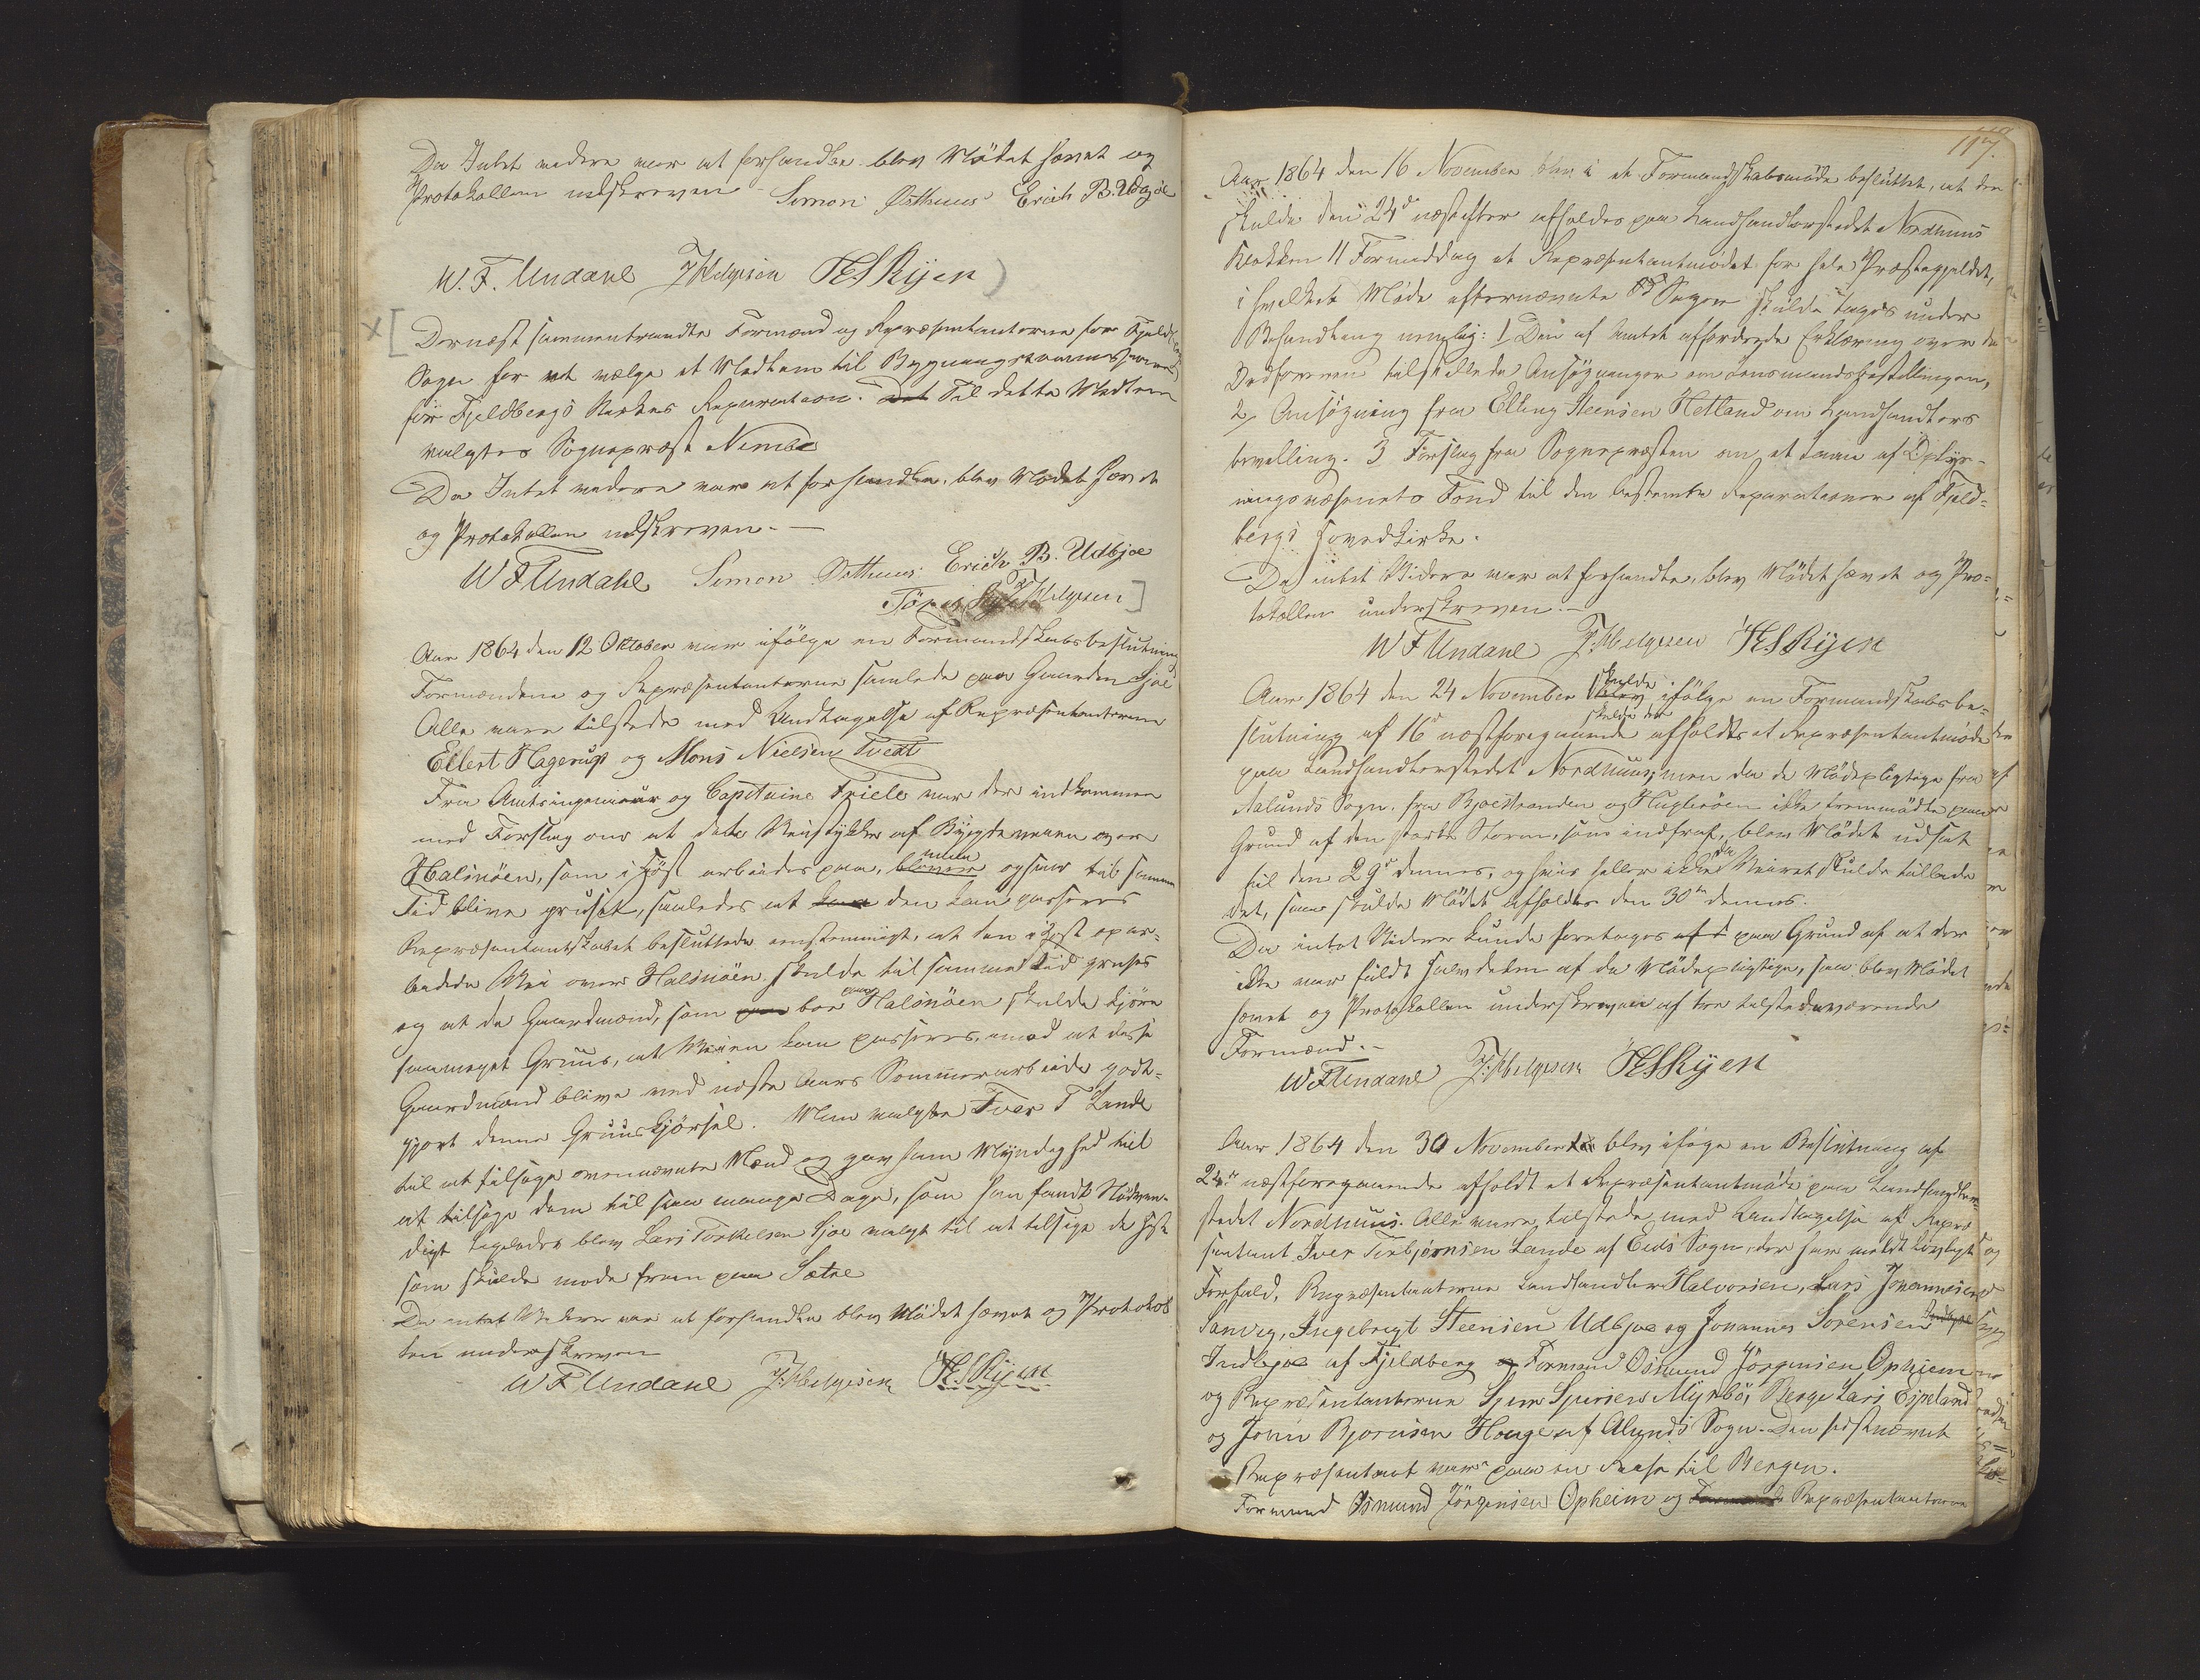 Da Intet videre var at forhandle blev Mödet hævet og
Protokollen udskreven - Simon Østhuus Erich B. Udbjoe
W. F. Undahl J Helgesen JES Rijen
Dernæst sammentraadte Formænd og Repræsentanterne for Fjeldberg
Sogn for at vælge et Medlem til Bygningskommissionen
for Fjeldbergs Kirkes Reparation. Det Til dette Medlem
valgtes Sognepræst Nimbe
Da Intet videre var at forhandle, blev Mödet hævet
og Protokollen udskreven. —
W F Undahl Simon Østhuus Erich B. Udbjoe
J Helgesen
Aar 1864 den 12 Oktober var ifölge en Formandskabsbeslutning
Formændene og Repræsentanterne samlede paa Gaarden Sjoe
Alle vare tilstede med Undtagelse af Repræsentanterne
Ellert Hagerup og Mons Nielsen Tvedt
Fra Amtsingeniør og Capitaine Friele var der indkommen
med Forslag om at dete Veistykke af Bygdeveien over
Halsnöen, som i Höst arbeides paa, bliver maa ogsaa til samme
Tid blive gruset, saaledes at den kan passeres
Repræsentantskabet besluttede eenstemmigt, at den i Höst opar-
beidede Vei over Halsnöen skulde til samme Tid gruses
og at de Gaardmænd, som paa boe paa Halsnöen skulde kjöre
saameget Gruus, at Veien kan passeres, mod at disse
Gaardmænd blive ved næste Aars Sommerarbeide godt-
gjort denne Gruuskjörsel. Man valgte Iver T Lande
til at tilsige ovennævnte Mænd og gav ham Myndighed til
at tilsige dem til saa mange Dage, som han fandt Nödven-
digt ligeledes blev Lars Torkelsen Sjoe valgt til at tilsige de Heste
som skulde möde frem paa Sætre
Da intet Videre var at forhandle blev Mödet hævet og Protokol
len underskreven
W F Undahl J. Helgesen JES Rijen
117.
Aar 1864 den 16 November blev i et Formandskabsmöde besluttet, at der
skulde den 24de næstefter afholdes paa Landhandlerstedet Nordhuus
Klokken 11 Formiddag et Repræsentantmödet for hele Præstegjeldet,
i hvilket Möde efternævnte Sager skulde tages under
Behandling nemlig: 1 Den af Amtet affordrede Erklæring over de
Dedsomme tilstillede Ansögninger om Lensmandsbestillingen,
2, Ansögning fra Elling Steensen Hetland om Landhandlers
bevilling. 3 Forslag fra Sognepræsten om et Laan af Oplys-
ningsvæsenets Fond til den bestemte Reparationer af Fjeld-
bergs Hovedkirke.
Da intet Videre var at forhandle, blev Mödet hævet og Pro-
tokollen underskreven. -
W F Undahl J. Helgesen JES Rijen
Aar 1864 den 24 November blev skulde ifölge en Formandskabsbe-
slutning af 16de næstforegaaende afholdes et Repræsentantmöde
paa Landhandlerstedet Nordhuus, men da de Mödepligtige fra
Aalunds Sogn, fra Bjoestranden og Huglöen ikke fremmödte paa
Grund af den sterke Storm, som indtraf, blev Mödet udsat
til den 29de dennes, og hvis heller ikke da Veiret skulde tillade
det, saa skulde Mödet afholdes den 30te dennes.
Da intet Videre kunde foretages af d paa Grund af at der
ikke var fuldt halvdelen af de Mödepligtige, saa blev Mödet
hævet og Protokollen underskreven af tre tilstedeværende
Formænd. -
W F Undahl J. Helgesen JES Rijen
Aar 1864 den 30 November blev ifölge en Beslutning af
24de næstforegaaende afholdt et Repræsentantmöde paa Landhandler-
stedet Nordhuus. Alle vare tilstede med Undtagelse af Repræ
sentant Iver Torbjörnsen Lande af Eids Sogn, der har meldt lovligt
Forfald, Repræsentanterne Landhandler Halvorsen, Lars Johannesen
Sanvig, Ingebregt Steensen Udbjoe og Johannes Sorensen
Indbjoe af Fjeldberg og Formand Osmund Jörgensen Opheim
og Repræsentanterne Sjur Sjursen Myrbö, Berge Larj Espeland
og John Bjornsen Houge af Alunds Sogn. Den sidstnævnt
Repræsentant var paa en Reise til Bergen.
Formand Osmund Jörgensen Opheim og Repræsentanterne